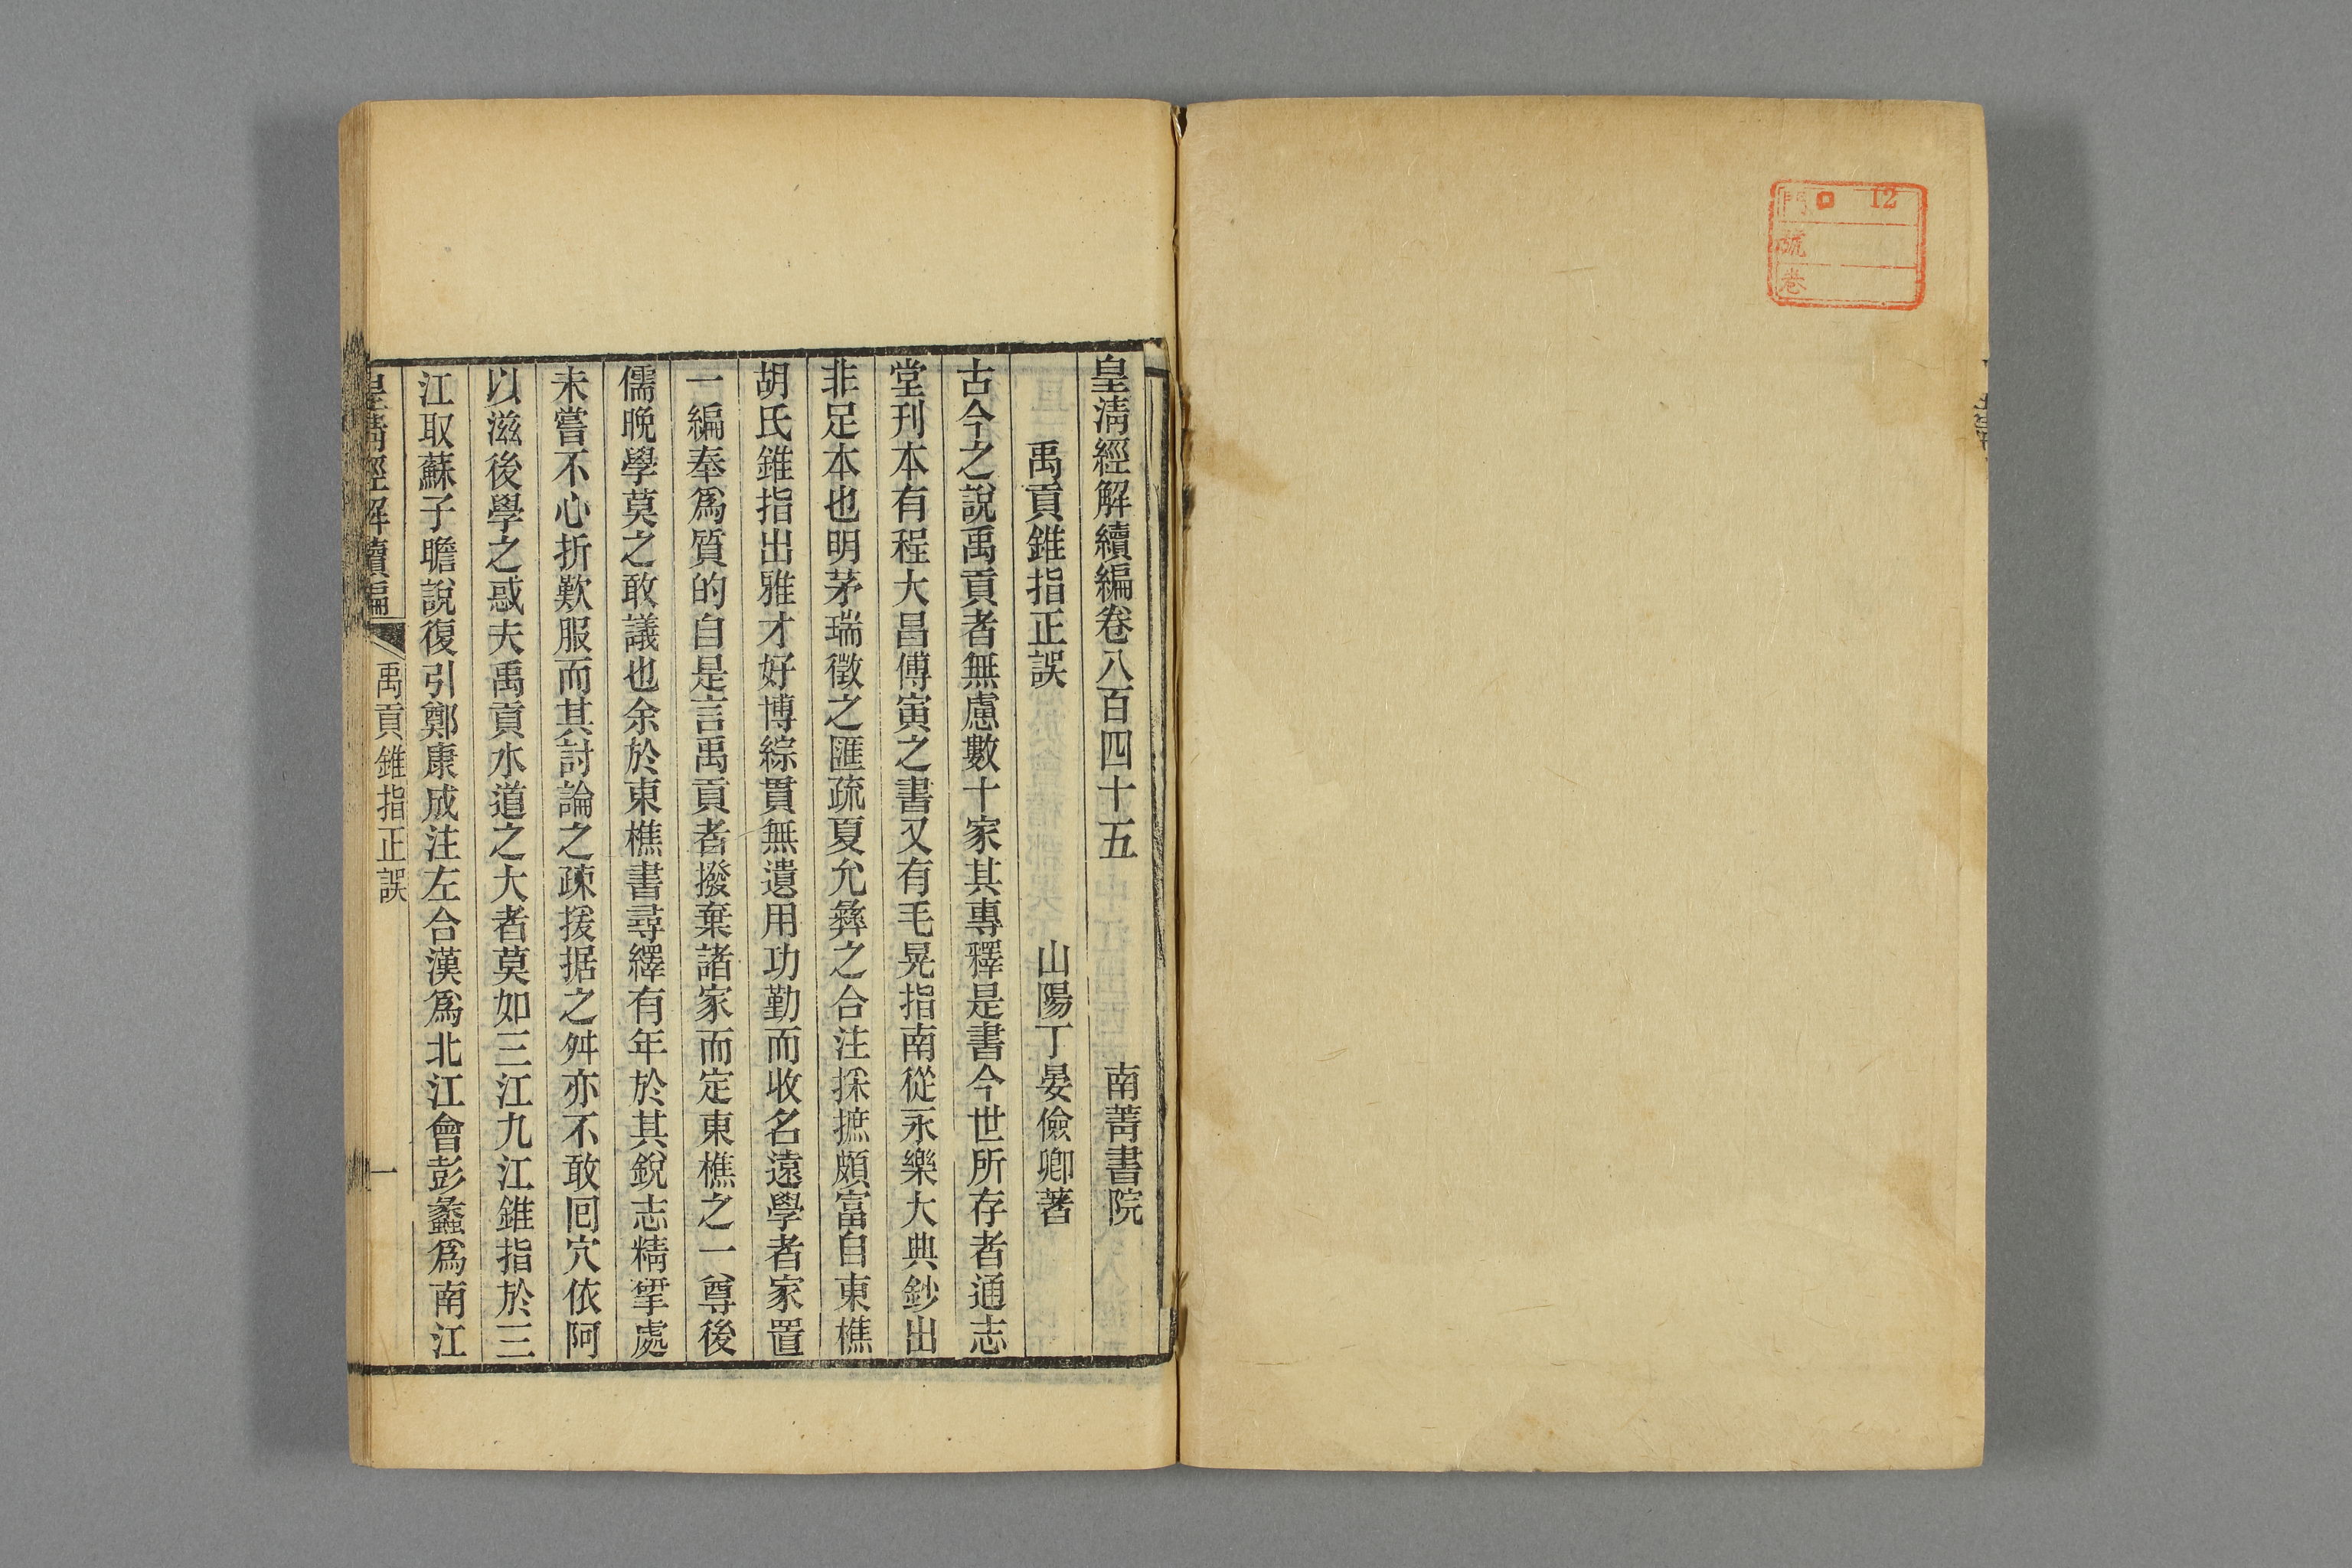 12
門
號
卷
皇淸經解續編卷八百四十五　南菁書院
禹貢錐指正誤　山陽丁晏儉卿著
古今之說禹貢者無慮數十家其專釋是書今世所存者通志
堂刊本有程大昌傅寅之書又有毛晃指南從永樂大典鈔出
非足本也明茅瑞徵之匯疏夏允彝之合注採摭頗富自東樵
胡氏錐指出雅才好博綜貫無遺用功勤而收名遠學者家置
一編奉爲質的自是言禹貢者撥棄諸家而定東樵之一尊後
儒晚學莫之敢議也余於東樵書尋繹有年於其銳志精揅處
未嘗不心折歎服而其討論之疎援据之舛亦不敢囘穴依阿
以滋後學之惑夫禹貢水道之大者莫如三江九江錐指於三
江取蘇子瞻說復引鄭康成注左合漢爲北江會彭蠡爲南江
皇淸經解續編　禹貢錐指正誤　一